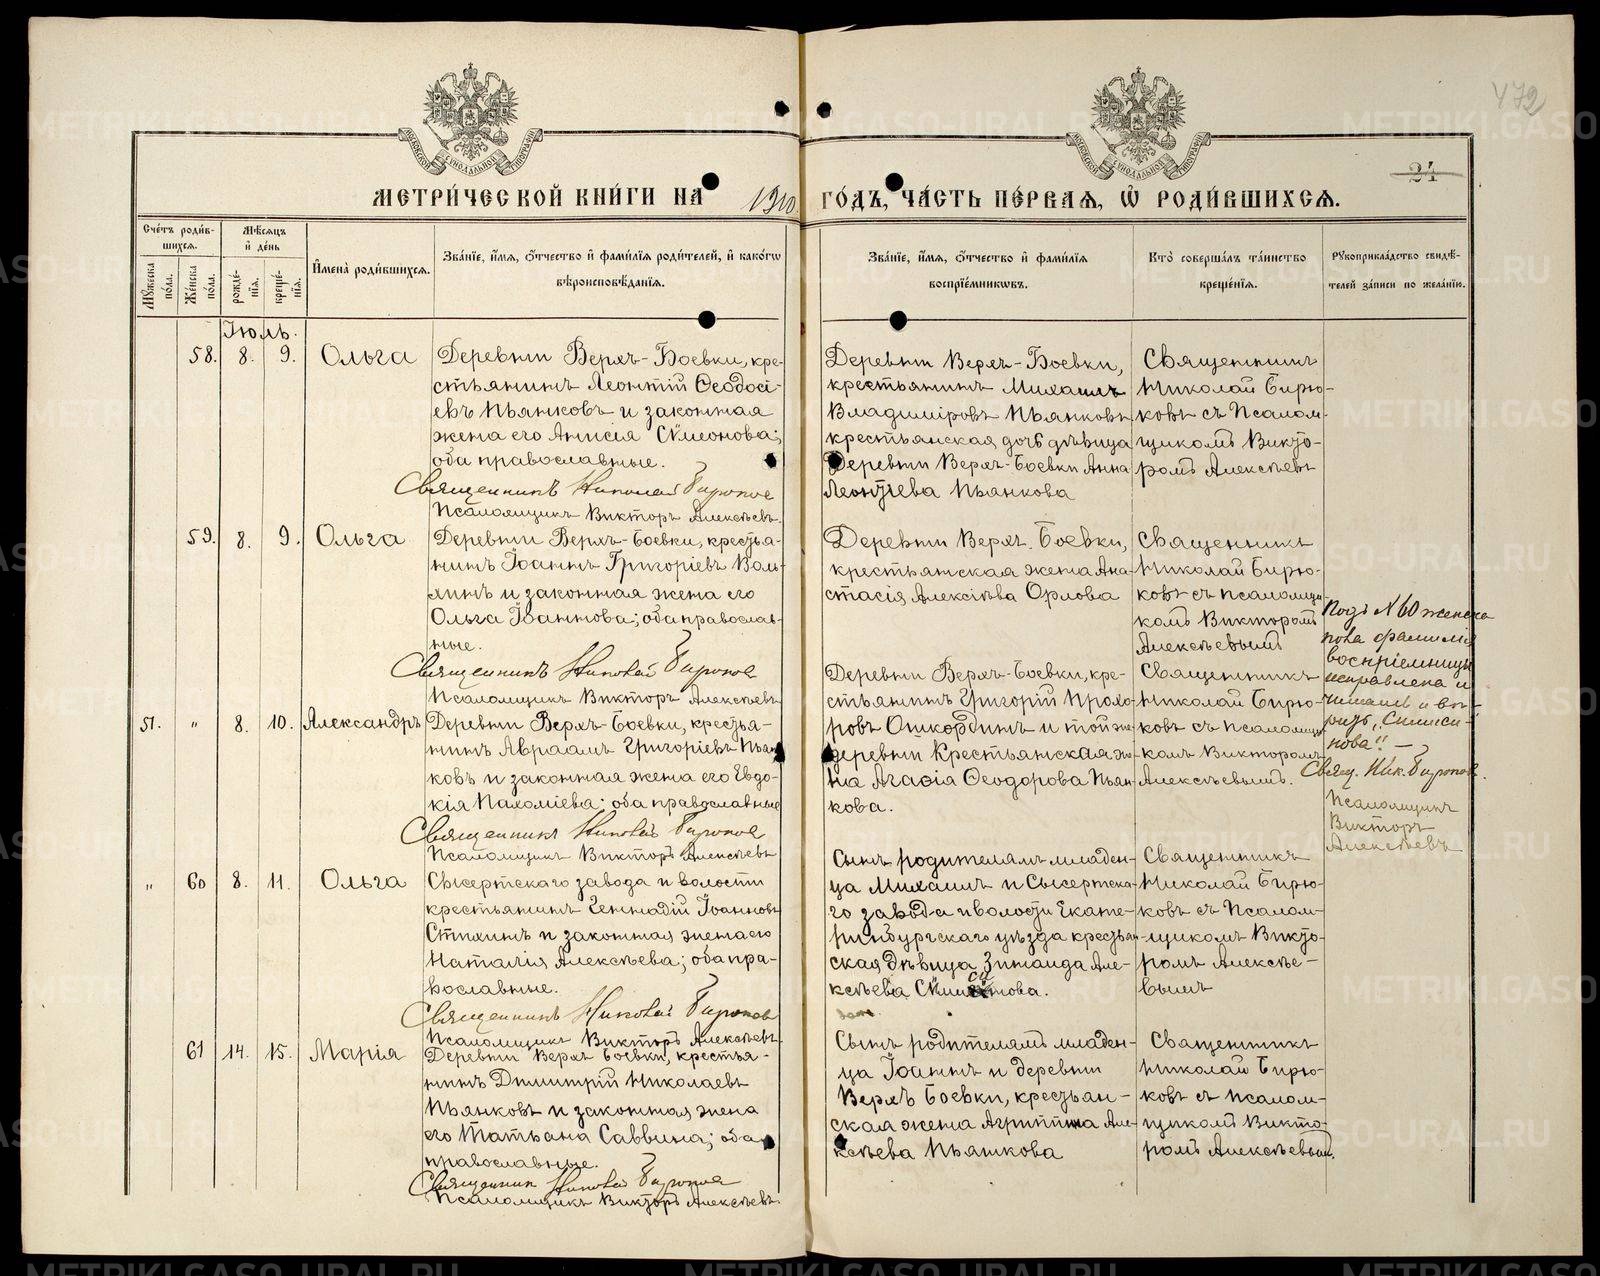 472
24
МОСКОВСКОЙ СѴНОДАЛЬНОЙ ТИПОГРАФІИ
МОСКОВСКОЙ СѴНОДАЛЬНОЙ ТИПОГРАФІИ
МЕТРИ́ЧЕСКОЙ КНИ́ГИ НА 1910 ГО́ДЪ, ЧА́СТЬ ПЕ́РВАЯ, Ѡ РОДИ́ВШИХСЯ.
Сче́тъ роди́в-
шихся.
Мѣ́сяцъ
и҆ де́нь
Му́жеска по́ла.
Же́нска по́ла.
рожде́-
нїя.
креще́-
нїя.
И҆мена̀ роди́вшихся.
Зва́нїе, и҆́мя, ѻ҆́тчество и҆ фами́лїя роди́телей, и҆ како́гѡ
вѣроисповѣ́данїя.
Зва́нїе, и҆́мя, ѻ҆́тчество и҆ фами́лїя
воспрїе́мникѡвъ.
Кто̀ соверша́лъ та́инство
креще́нїя.
Рꙋкоприкла́дство свидѣ́-
телей за́писи по жела́нїю.
Іюль.
58. 8. 9. Ольга
Деревни Верхъ-Боевки, кре-
стьянинъ Леонтій Ѳеодосі-
евъ Пьянковъ и законная
жена его Анисія Симеонова;
оба православные.
Священникъ Николай Бирюков
Псаломщикъ Викторъ Алексѣевъ.
Деревни Верхъ-Боевки,
крестьянинъ Михаилъ
Владиміровъ Пьянковъ
крестьянская дочь дѣвица
деревни Верхъ-Боевки Анна
Леонтіева Пьянкова
Священникъ
Николай Бирю-
ковъ съ Псалом-
щикомъ Викто-
ромъ Алексѣевъ
59. 8. 9. Ольга
Деревни Верхъ-Боевки, крестья-
нинъ Іоаннъ Григоріевъ Валь-
яинъ и законная жена его
Ольга Іоаннова; оба православ-
ные.
Священникъ Николай Бирюков
Псаломщикъ Викторъ Алексѣевъ
Деревни Верхъ-Боевки,
крестьянская жена Ана-
стасія Алексіѣва Орлова
Священникъ
Николай Бирю-
ковъ съ псаломщи-
комъ Викторомъ
Алексѣевымъ
51. " 8. 10. Александръ
Деревни Верхъ-Боевки, крестья-
нинъ Авраамъ Григоріевъ Пьян-
ковъ и законная жена его Евдо-
кія Пахоміева; оба православные
Священникъ Николай Бирюков
Псаломщикъ Викторъ Алексѣевъ
Деревни Верхъ-Боевки, кре-
стьянинъ Григорій Прохо-
ровъ Ошкординъ и той же
деревни Крестьянская же-
на Агаѳія Ѳеодорова Пьян-
кова.
Священникъ
Николай Бирю-
ковъ съ Псаломщи-
комъ Викторомъ
Алексѣевымъ.
Подъ №60 женска
пола фамилія
воспріемницы
исправлена и
читать и вѣ-
рить: "Симеси-
нова". —
Свящ. Ник. Бирюков.
Псаломщикъ
Викторъ
Алексѣевъ
" 60 8. 11. Ольга
Сысертскаго завода и волости
крестьянинъ Геннадій Іоанновъ
Стихинъ и законная жена его
Наталія Алексѣева; оба пра-
вославные.
Священникъ Николай Бирюков
Псаломщикъ Викторъ Алексѣевъ.
Сынъ родителямъ младен-
ца Михаилъ и Сысертска-
го завода и волости Екате-
ринбургскаго уѣзда крестьян-
ская дѣвица Зинаида Але-
ксѣева
Священникъ
Николай Бирю-
ковъ съ Псалом-
щикомъ Викто-
ромъ Алексѣе-
вымъ
61 14. 15. Марія
Деревни Верхъ Боевки, крестья-
нинъ Дмитрій Николаевъ
Пьянковъ и законная жена
его Татьяна Саввина; оба
православные.
Священник Николай Бирюков
Псаломщикъ Викторъ Алексѣевъ
Сынъ родителямъ младен-
ца Іоаннъ и деревни
Верхъ Боевки, крестьян-
ская жена Агриппина Але-
ксѣева Пьянкова
Священникъ
Николай Бирю-
ковъ съ псалом-
щикомъ Викто-
ромъ Алексѣевым.
METRIKI.GASO-URAL.RU